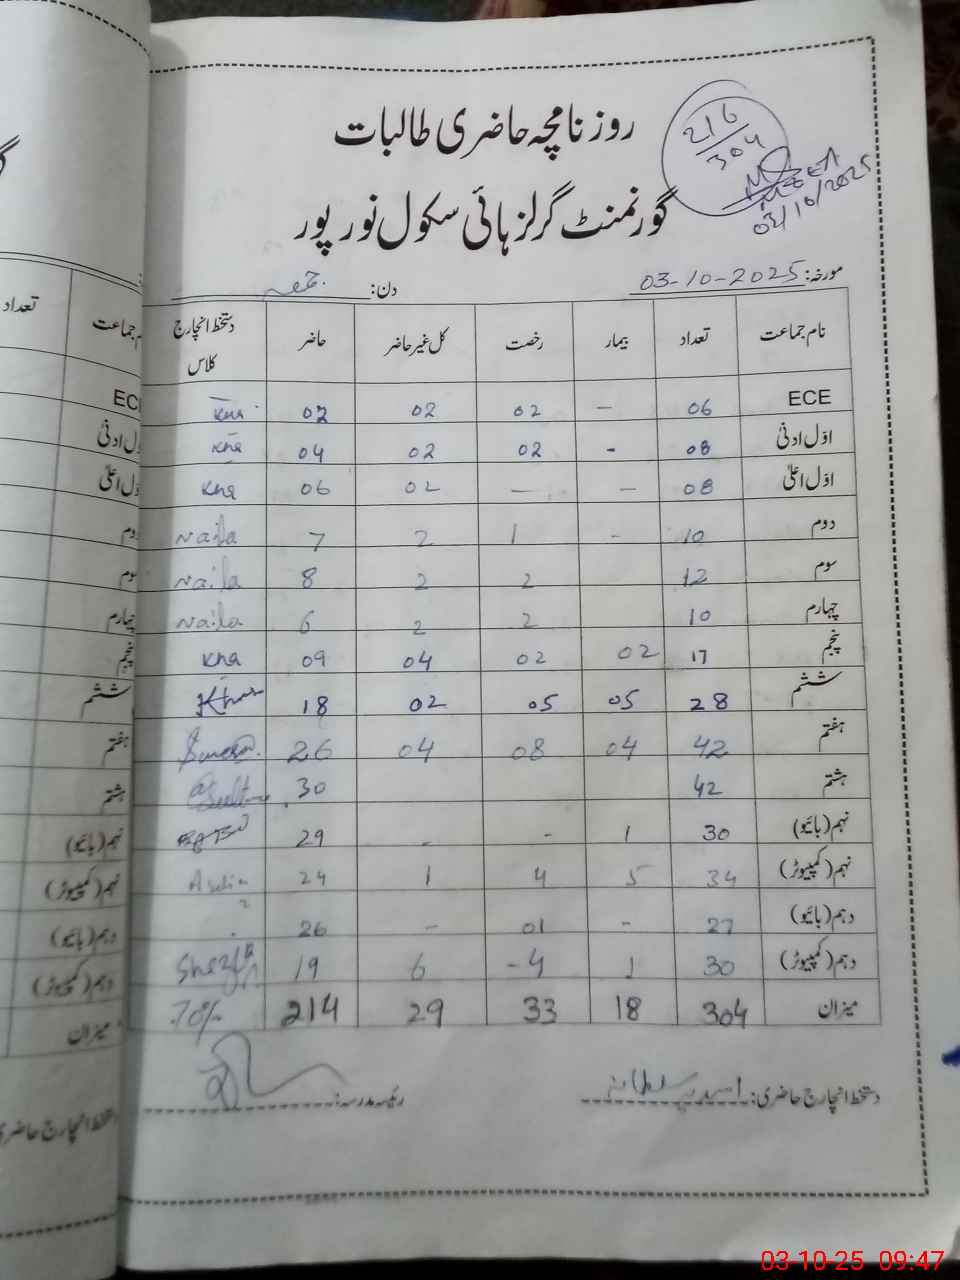 روزنامچہ حاضری طالبات
216
304
MEEA
03/10/2025
گورنمنٹ گرلز ہائی سکول نور پور
مورخہ: 03-10-2025 دن: جمعہ
نام جماعت تعداد بیمار رخصت کل غیر حاضر حاضر دستخط انچارج کلاس
ECE 06 – 02 02 02
اوّل ادنیٰ 08 - 02 02 04 Kha
اوّل اعلیٰ 08 – – 02 06 Kha
دوم 10 - 1 2 7 Naila
سوم 12 2 2 8 Naila
چہارم 10 2 2 6 Naila
پنجم 17 02 02 04 09 Kha
ششم 28 05 05 02 18
ہفتم 42 04 08 04 26
ہشتم 42 30
نہم (بائیو) 30 1 - - 29
نہم (کمپیوٹر) 34 5 4 1 24
دہم (بائیو) 27 - 01 - 26
دہم (کمپیوٹر) 30 1 -4 6 19
میزان 304 18 33 29 214 70%
دستخط انچارج حاضری: رئیسہ مدرسہ:
تعداد
نام جماعت
ECE
اوّل ادنیٰ
اوّل اعلیٰ
دوم
سوم
چہارم
پنجم
ششم
ہفتم
ہشتم
نہم (بائیو)
نہم (کمپیوٹر)
دہم (بائیو)
دہم (کمپیوٹر)
میزان
دستخط انچارج حاضری
03-10-25 09:47